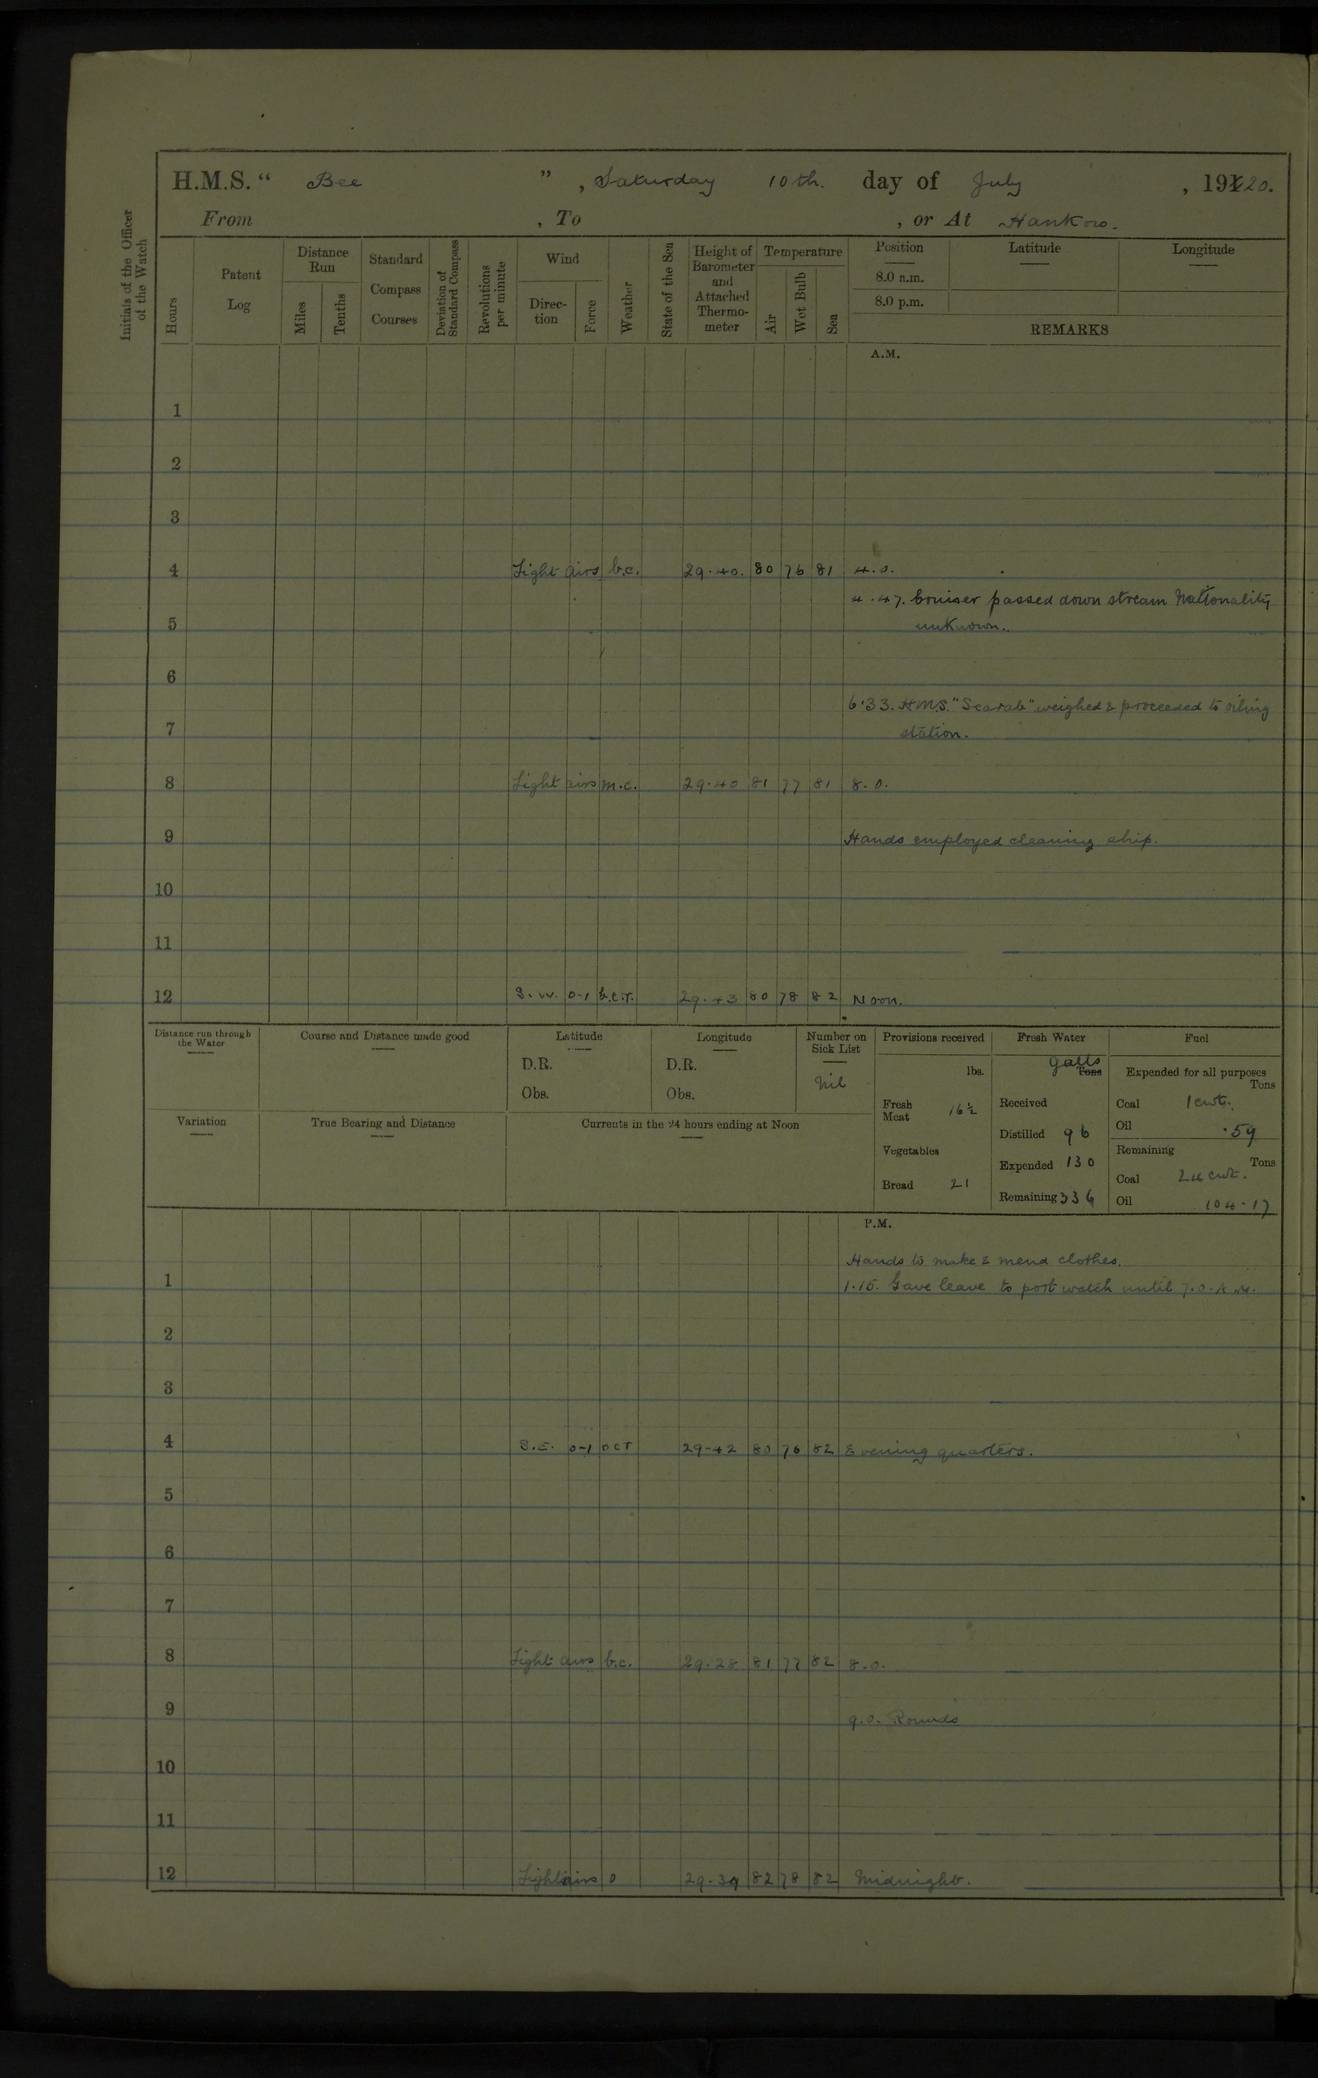 H.M.S. “ Bee ” , Saturday 10th. day of July , 1920.
From , To , or At Hankow.
Initials of the Officer of the Watch
Hours
Patent Log
Distance Run
Miles
Tenths
Standard Compass Courses
Deviation of Standard Compass
Revolutions per minute
Wind
Direc-tion
Force
Weather
State of the Sea
Height of Barometer and Attached Thermo-meter
Temperature
Air
Wet Bulb
Sea
Position
8.0 a.m.
8.0 p.m.
Latitude
Longitude
REMARKS
A.M.
1
2
3
4 Light airs b.c. 29.40. 80 76 81 4.0.
4.47. Cruiser passed down stream Nationality
5 unknown.
6
6.33. H.M.S. "Scarab" weighed & proceeded to oiling
7 station.
8 Light airs m.c. 29.40 81 77 81 8.0.
9 Hands employed cleaning ship.
10
11
12 S.W. 0-1 b.c.r. 29.43 80 78 82 Noon.
Distance run through the Water
Course and Distance made good
Latitude
D.R.
Obs.
Longitude
D.R.
Obs.
Number on Sick List
Nil
Provisions received
lbs.
Fresh Meat 16½
Vegetables
Bread 21
Fresh Water
galls
Tons
Received
Distilled 96
Expended 130
Remaining 336
Fuel
Expended for all purposes
Tons
Coal 1 cwt.
Oil .59
Remaining
Tons
Coal 24 cwt.
Oil 104.17
Variation
True Bearing and Distance
Currents in the 24 hours ending at Noon
P.M.
Hands to make & mend clothes.
1 1.15. Gave leave to port watch until 7.0. A.M.
2
3
4 S.E. 0-1 OCT 29-42 80 76 82 Evening quarters.
5
6
7
8 Light airs b.c. 29.28 81 77 82 8.0.
9 9.0. Rounds
10
11
12 Light airs 0 29-39 82 78 82 Midnight.